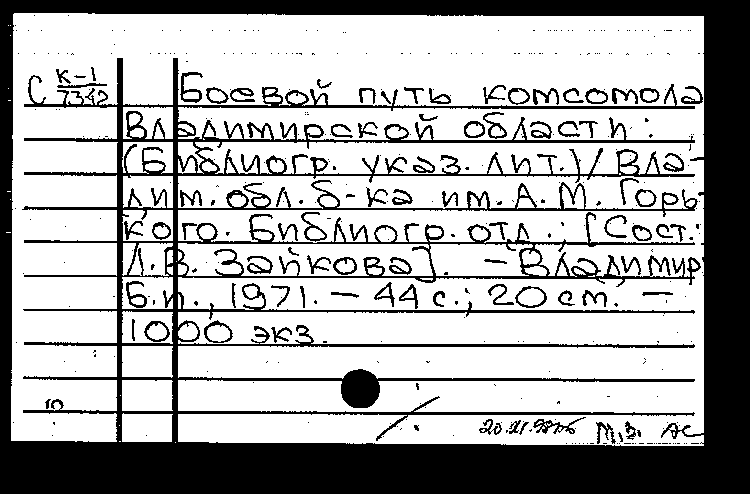 С К-1
7342
Боевой путь комсомола
Владимирской области :
(Библиогр. указ. лит.) / Вла-
дим. обл. б-ка им. А. М. Горь-
кого. Библиогр. отд. ; [Сост.:
Л. В. Зайкова]. — Владимир
Б.и., 1971. — 44 с.; 20 см. —
1000 экз.
10
М.З. АС